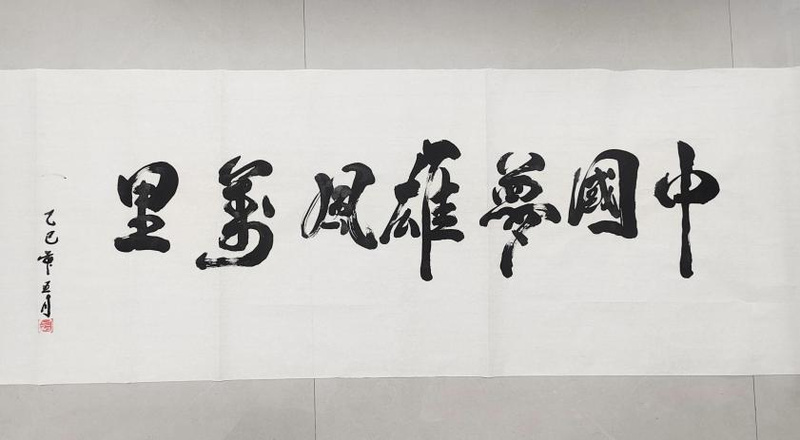 中國夢雄風萬里
乙巳年五月